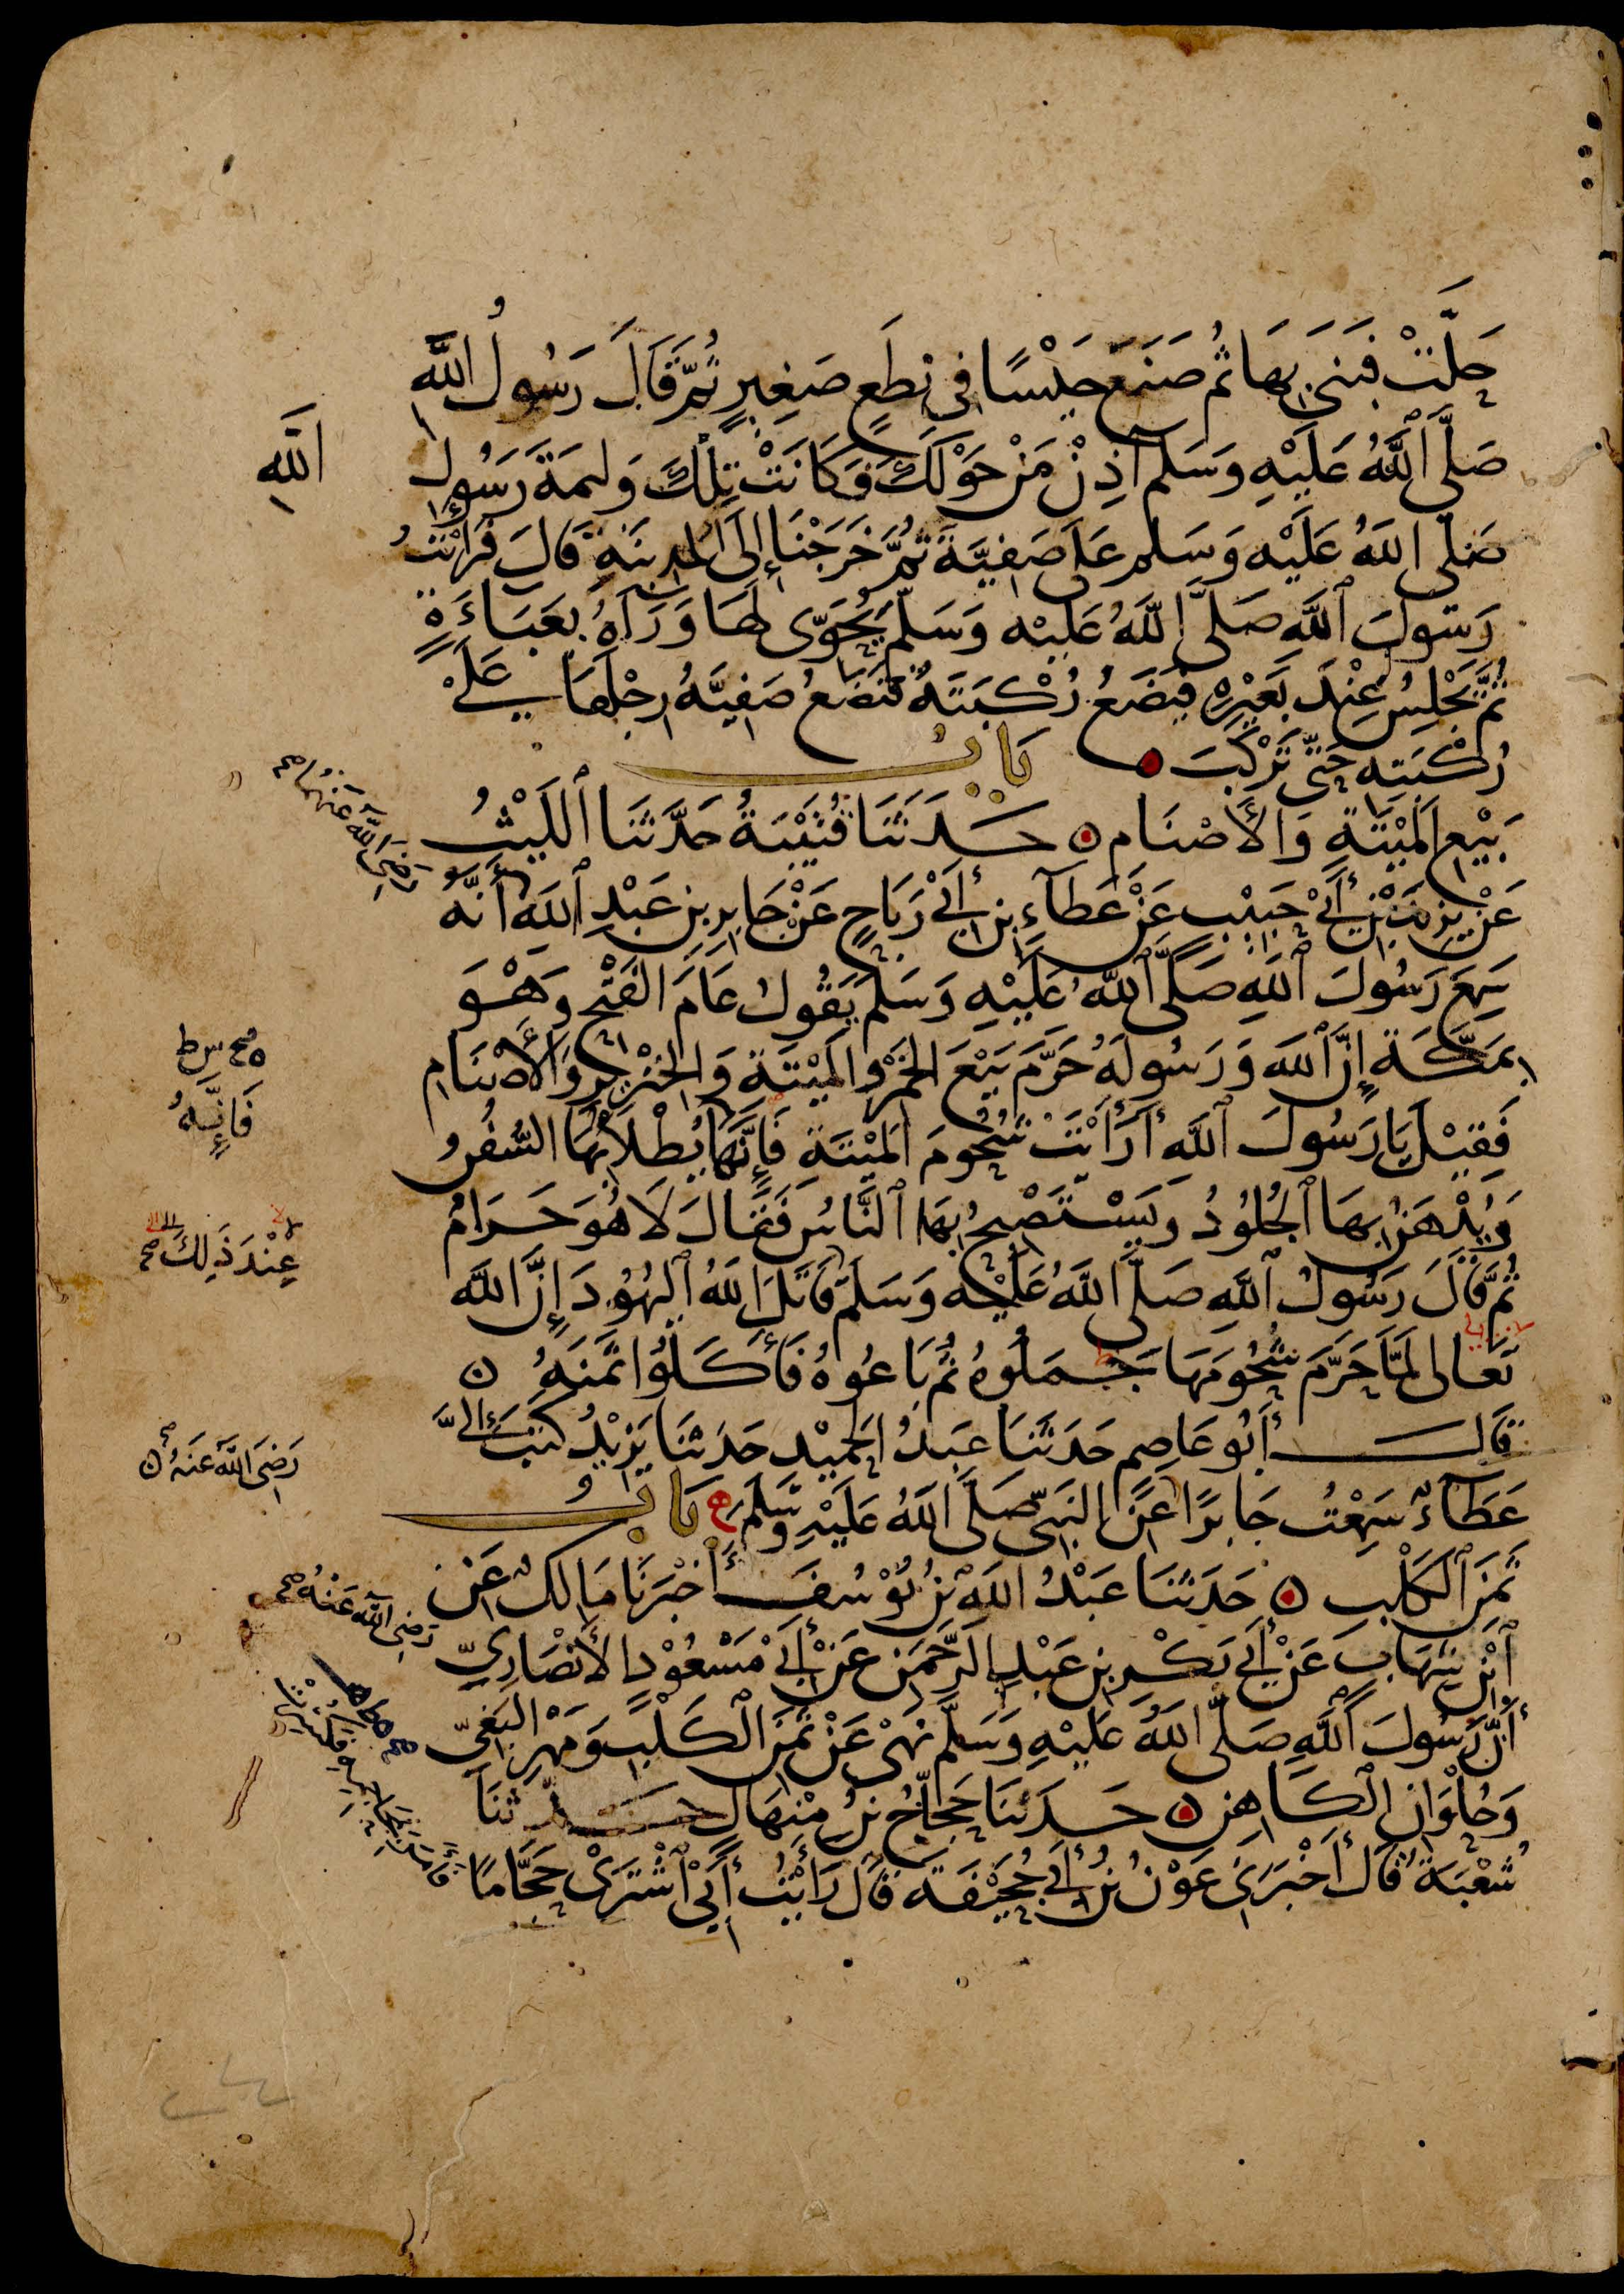 حَلَّتْ فَبَنَى بِهَا ثُمَّ صَنَعَ حَيْسًا فِي نِطَعٍ صَغِيرٍ ثُمَّ قَالَ رَسُولُ اللَّهِ
صَلَّى اللَّهُ عَلَيْهِ وَسَلَّمَ آذِنْ مَنْ حَوْلَكَ فَكَانَتْ تِلْكَ وَلِيمَةَ رَسُولِ
اللَّهِ
صَلَّى اللَّهُ عَلَيْهِ وَسَلَّمَ عَلَى صَفِيَّةَ ثُمَّ خَرَجْنَا إِلَى الْمَدِينَةِ قَالَ فَرَأَيْتُ
رَسُولَ اللَّهِ صَلَّى اللَّهُ عَلَيْهِ وَسَلَّمَ يُحَوِّي لَهَا وَرَاءَهُ بِعَبَاءَةٍ
ثُمَّ يَجْلِسُ عِنْدَ بَعِيْرِهِ فَيَضَعُ رُكْبَتَهُ فَتَضَعُ صَفِيَّةُ رِجْلَهَا عَلَى
رُكْبَتِهِ حَتَّى تَرْكَبَ بَابُ
بَيْعِ الْمَيْتَةِ وَالأَصْنَامِ حَدَّثَنَا قُتَيْبَةُ حَدَّثَنَا اللَّيْثُ
عَنْ يَزِيدَ بْنِ أَبِي حَبِيْبٍ عَنْ عَطَاءِ بْنِ أَبِي رَبَاحٍ عَنْ جَابِرِ بْنِ عَبْدِ اللَّهِ أَنَّهُ
رَضِيَ اللَّهُ عَنْهُمَا صح
سَمِعَ رَسُولَ اللَّهِ صَلَّى اللَّهُ عَلَيْهِ وَسَلَّمَ يَقُولُ عَامَ الْفَتْحِ وَهْوَ
بِمَكَّةَ إِنَّ اللَّهَ وَرَسُولَهُ حَرَّمَ بَيْعَ الْخَمْرِ وَالْمَيْتَةِ وَالْخِنْزِيرِ وَالأَصْنَامِ
فَقِيْلَ يَا رَسُولَ اللَّهِ أَرَأَيْتَ شُحُومَ الْمَيْتَةِ فَإِنَّهَا يُطْلَا بِهَا السُّفُنُ
فَإِنَّهُ
وَيُدْهَنُ بِهَا الْجُلُودُ وَيَسْتَصْبِحُ بِهَا النَّاسُ فَقَالَ لَا هُوَ حَرَامٌ
ثُمَّ قَالَ رَسُولُ اللَّهِ صَلَّى اللَّهُ عَلَيْهِ وَسَلَّمَ قَاتَلَ اللَّهُ الْيَهُودَ إِنَّ اللَّهَ
عِنْدَ ذَلِكَ صح
تَعَالَى لَمَّا حَرَّمَ شُحُومَهَا جَمَلُوهُ ثُمَّ بَاعُوهُ فَأَكَلُوا ثَمَنَهُ
قَالَ أَبُو عَاصِمٍ حَدَّثَنَا عَبْدُ الْحَمِيْدِ حَدَّثَنَا يَزِيْدُ كَتَبَ إِلَيَّ
عَطَاءٌ سَمِعْتُ جَابِرًا عَنِ النَّبِيِّ صَلَّى اللَّهُ عَلَيْهِ وَسَلَّمَ بَابُ
رَضِيَ اللَّهُ عَنْهُ
ثَمَنِ الْكَلْبِ حَدَّثَنَا عَبْدُ اللَّهِ بْنُ يُوْسُفَ أَخْبَرَنَا مَالِكٌ عَنِ
ابْنِ شِهَابٍ عَنْ أَبِي بَكْرِ بْنِ عَبْدِ الرَّحْمَنِ عَنْ أَبِي مَسْعُوْدٍ الأَنْصَارِيِّ
رَضِيَ اللَّهُ عَنْهُ صح
أَنَّ رَسُولَ اللَّهِ صَلَّى اللَّهُ عَلَيْهِ وَسَلَّمَ نَهَى عَنْ ثَمَنِ الْكَلْبِ وَمَهْرِ الْبَغِيِّ
وَحُلْوَانِ الْكَاهِنِ حَدَّثَنَا حَجَّاجُ بْنُ مِنْهَالٍ حَدَّثَنَا
شُعْبَةُ قَالَ أَخْبَرَنِي عَوْنُ بْنُ أَبِي جُحَيْفَةَ قَالَ رَأَيْتُ أَبِي اشْتَرَى حَجَّامًا
فَأَمَرَ بِمَحَاجِمِهِ فَكُسِرَتْ